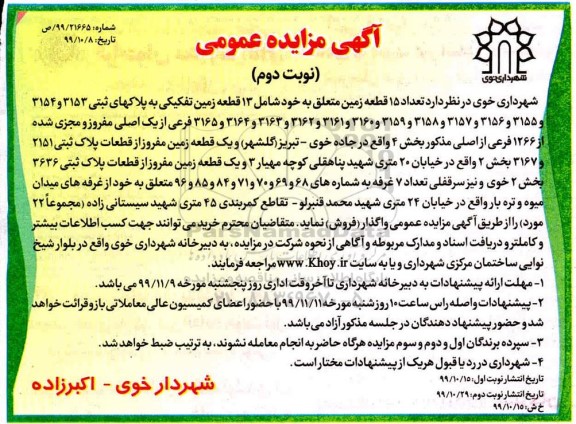 شماره: ۹۹/۲۱۶۶۵/ص
تاریخ: ۹۹/۱۰/۸
آگهی مزایده عمومی
(نوبت دوم)
شهرداری خوی
شهرداری خوی در نظر دارد تعداد ۱۵ قطعه زمین متعلق به خود شامل ۱۳ قطعه زمین تفکیکی به پلاکهای ثبتی ۳۱۵۳ و ۳۱۵۴
و ۳۱۵۵ و ۳۱۵۶ و ۳۱۵۷ و ۳۱۵۸ و ۳۱۵۹ و ۳۱۶۰ و ۳۱۶۱ و ۳۱۶۲ و ۳۱۶۳ و ۳۱۶۴ و ۳۱۶۵ فرعی از یک اصلی مفروز و مجزی شده
از ۱۲۶۶ فرعی از اصلی مذکور بخش ۴ واقع در جاده خوی - تبریز (گلشهر) و یک قطعه زمین مفروز از قطعات پلاک ثبتی ۲۱۵۱
و ۳۱۶۷ بخش ۲ واقع در خیابان ۲۰ متری شهید پناهقلی کوچه مهیار ۳ و یک قطعه زمین مفروز از قطعات پلاک ثبتی ۳۶۳۶
بخش ۲ خوی و نیز سرقفلی تعداد ۷ غرفه به شماره های ۶۸ و ۶۹ و ۷۰ و ۷۱ و ۸۴ و ۸۵ و ۹۶ متعلق به خود از غرفه های میدان
میوه و تره بار واقع در خیابان ۲۴ متری شهید محمد قنبرلو - تقاطع کمربندی ۴۵ متری شهید سیستانی زاده (مجموعاً ۲۲
مورد) را از طریق آگهی مزایده عمومی واگذار (فروش) نماید. متقاضیان محترم خرید می توانند جهت کسب اطلاعات بیشتر
و کاملتر و دریافت اسناد و مدارک مربوطه و آگاهی از نحوه شرکت در مزایده، به دبیرخانه شهرداری خوی واقع در بلوار شیخ
نوایی ساختمان مرکزی شهرداری و یا به سایت www.Khoy.ir مراجعه فرمایند.
۱- مهلت ارائه پیشنهادات به دبیرخانه شهرداری تا آخر وقت اداری روز پنجشنبه مورخه ۹۹/۱۱/۹ می باشد.
۲- پیشنهادات واصله راس ساعت ۱۰ روز شنبه مورخه ۹۹/۱۱/۱۱ با حضور اعضای کمیسیون عالی معاملاتی باز و قرائت خواهد
شد و حضور پیشنهاد دهندگان در جلسه مذکور آزاد می باشد.
۳- سپرده برندگان اول و دوم و سوم مزایده هرگاه حاضر به انجام معامله نشوند، به ترتیب ضبط خواهد شد.
۴- شهرداری در رد یا قبول هر یک از پیشنهادات مختار است.
تاریخ انتشار نوبت اول: ۹۹/۱۰/۱۵
تاریخ انتشار نوبت دوم: ۹۹/۱۰/۲۹
خ ش: ۹۹/۱۰/۱۵
شهردار خوی - اکبرزاده